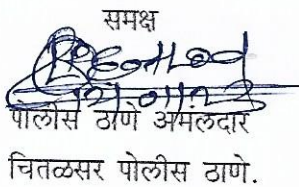 समक्ष
पोलीस ठाणे अंमलदार
चितळसर पोलीस ठाणे.